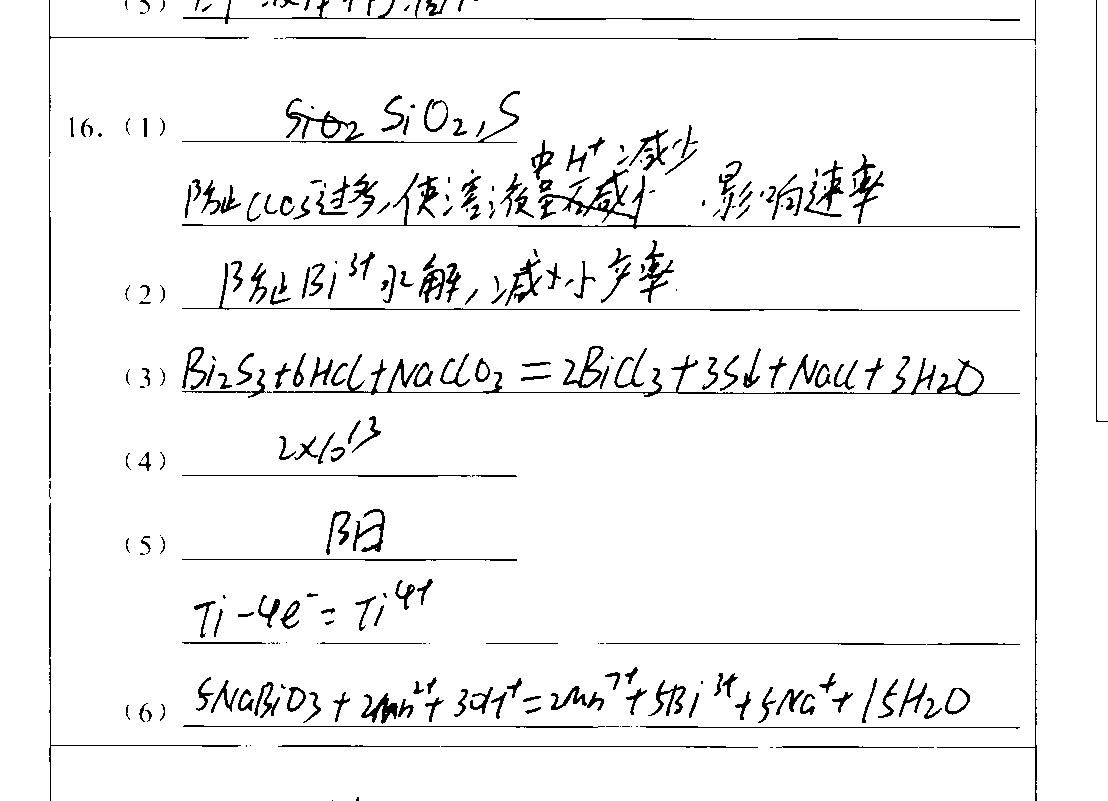 (5)
16. (1) SiO₂ SiO₂,S
防止ClO₃⁻过多,使溶液中H⁺减少,影响速率
(2) 防止Bi³⁺水解,减小产率.
(3) Bi₂S₃+6HCl+NaClO₃=2BiCl₃+3S↓+NaCl+3H₂O
(4) 2×10¹³
(5) 阳
Ti-4e⁻=Ti⁴⁺
(6) 5NaBiO₃+2Mn²⁺+30H⁺=2Mn⁷⁺+5Bi³⁺+5Na⁺+15H₂O